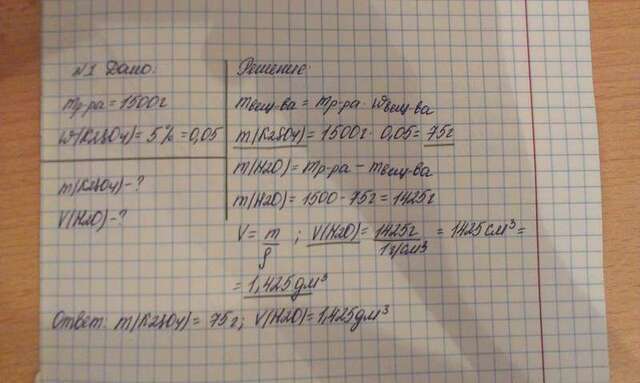 N1 Дано:
mр-ра = 1500г
W(K2SO4) = 5% = 0,05
m(K2SO4) - ?
V(H2O) - ?
Решение:
mвещ-ва = mр-ра · Wвещ-ва
m(K2SO4) = 1500г · 0,05 = 75г
m(H2O) = mр-ра - mвещ-ва
m(H2O) = 1500 - 75г = 1425г
V = m/ρ ; V(H2O) = 1425г/1г/см³ = 1425см³ =
= 1,425дм³
Ответ: m(K2SO4) = 75г; V(H2O) = 1,425дм³